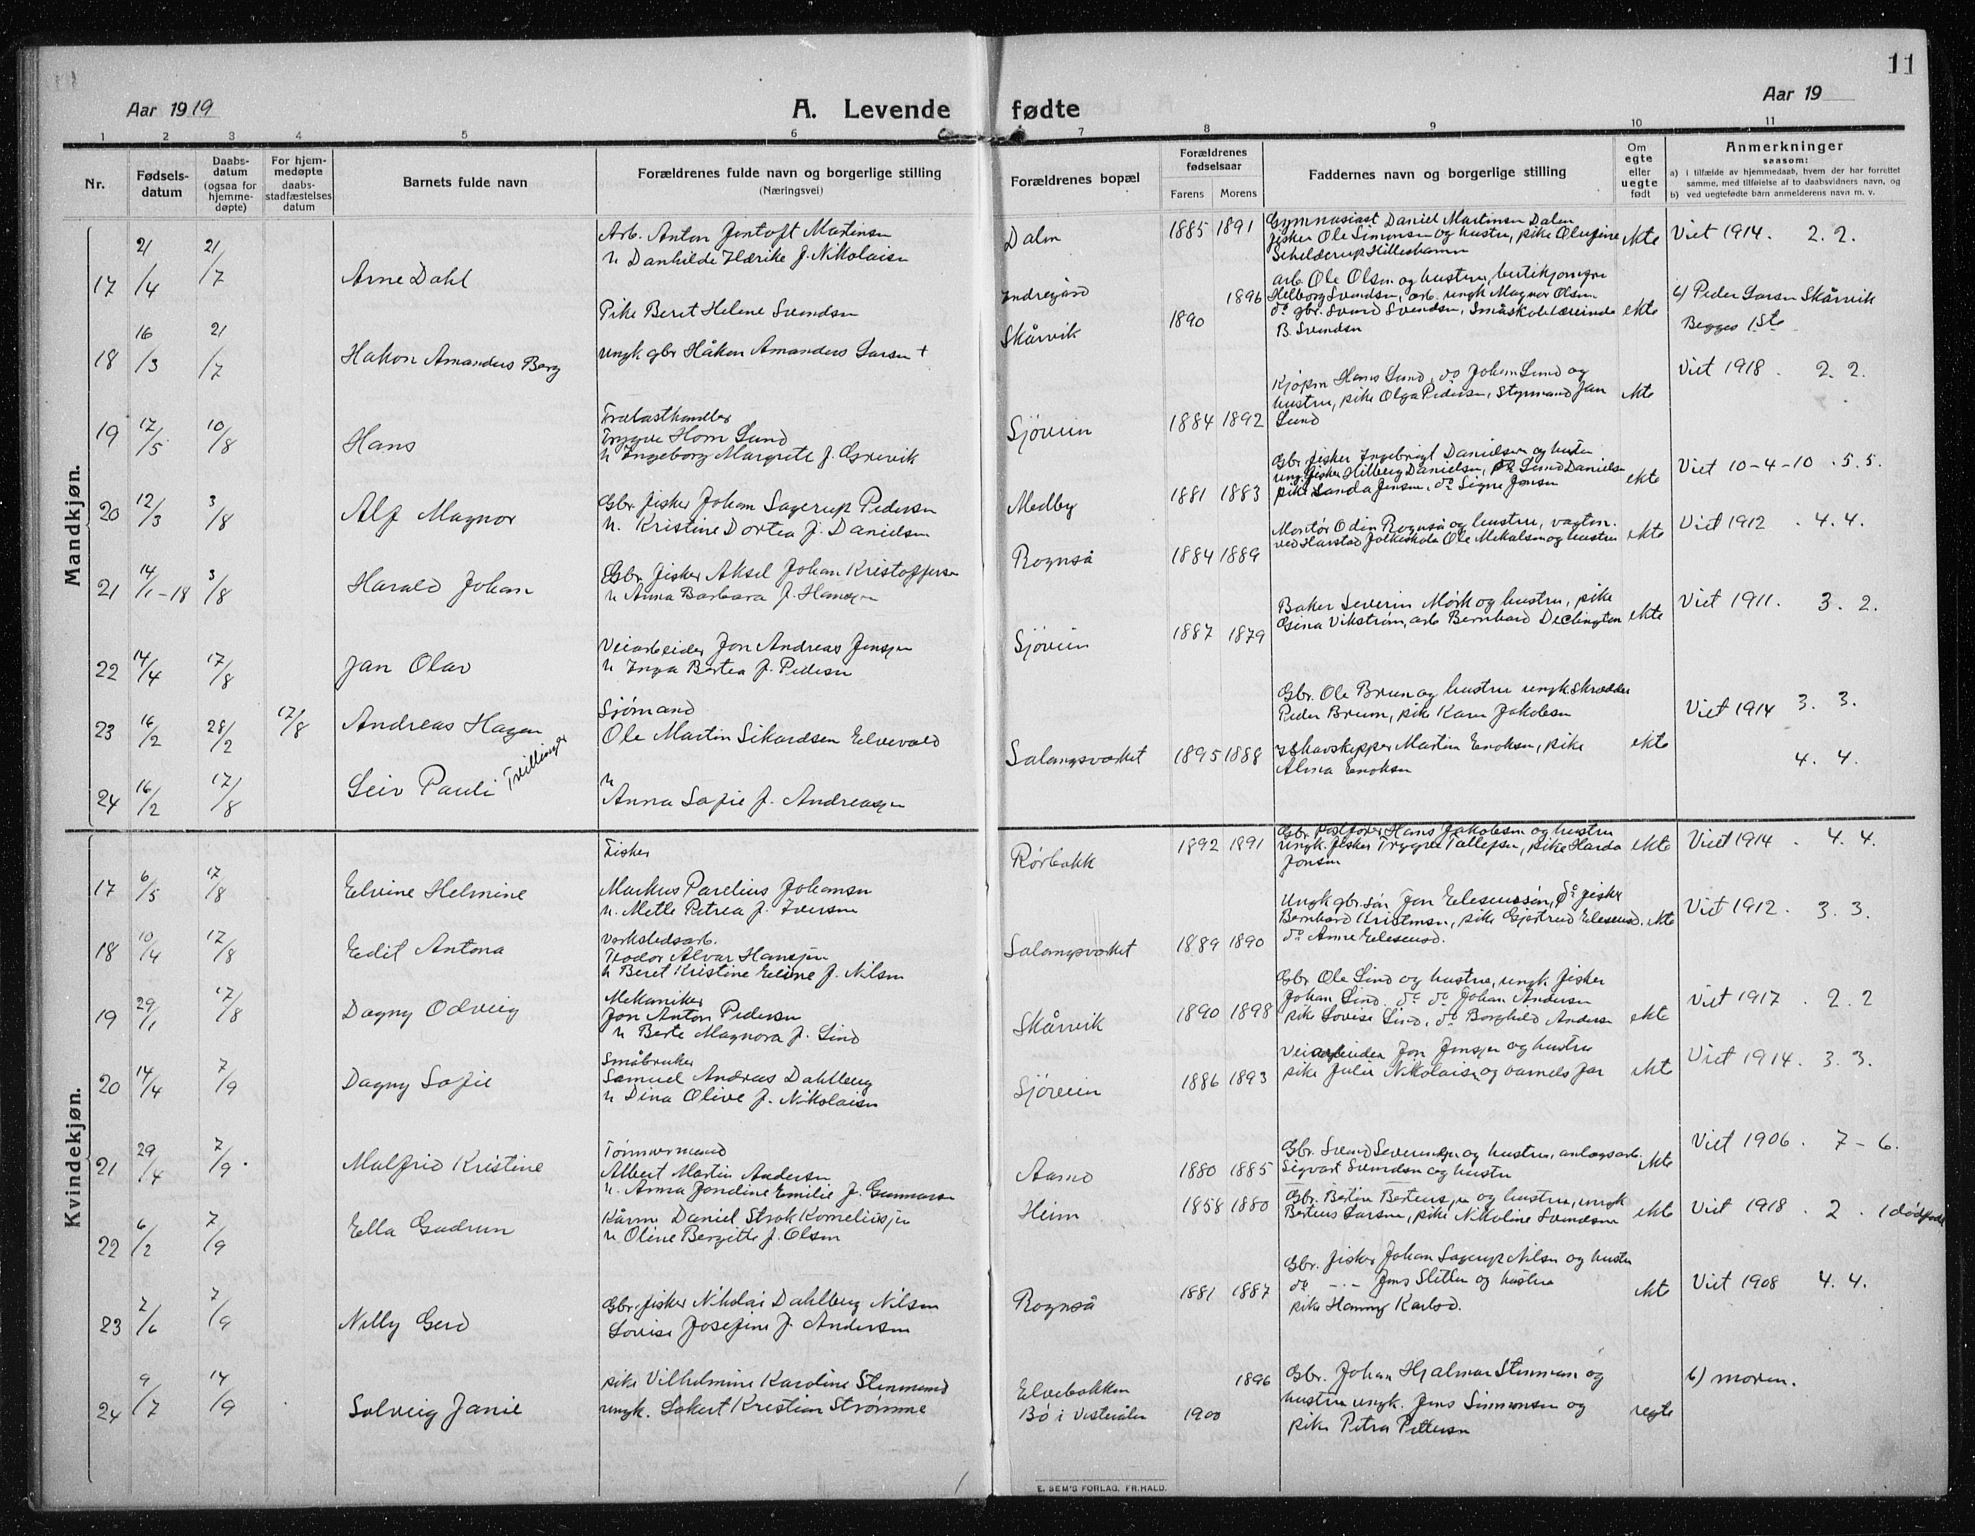 11
Aar 1919
A. Levende fødte
Aar 19
1 2 3 4 5 6 7 8 9 10 11
Nr.
Fødsels-
datum
Daabs-
datum
(ogsaa for
hjemme-
døpte)
For hjem-
medøpte
daabs-
stadfæstelses
datum
Barnets fulde navn
Forældrenes fulde navn og borgerlige stilling
(Næringsvei)
Forældrenes bopæl
Forældrenes
fødselsaar
Farens Morens
Faddernes navn og borgerlige stilling
Om
egte
eller
uegte
født
Anmerkninger
saasom:
a) i tilfælde av hjemmedaab, hvem der har forrettet
samme, med tilføielse af to daabsvidners navn, og
b) ved uegtefødte barn anmelderens navn m. v.
Mandkjøn.
17 21/4 21/7 Arne Dahl
Arb. Anton Jentoft Martinsen
h Danhilde Hærike f. Nikolaisen
Dalen 1885 1891
Gymnasiast Daniel Martinsen Dalen
fisker Ole Simonsen og hustru, pike Olufine
Schelderup Hilleshamn
ekte Viet 1914. 2. 2.
18 16/3 21/7 Hakon Amandus Berg
Pike Beret Helene Svendsen
ungk gbr Håkon Amandus Larsen +
Indregård 1896
Skårvik 1890
arb. Ole Olsen og hustru, butikjomfru
Helborg Svendsen, arb. ungk Magnor Olsen
do gbr. Svend Svendsen, Småskolelærerinde
B. Svendsen
ekte b) Peder Larsen Skårvik
Begges 1ste
19 17/5 10/8 Hans
Trælasthandler
Trygve Horn Lund
h Ingeborg Margrete f. Grevik
Sjøvein 1884 1892
Kjøpm Hans Lund, do Johan Lund og
hustru, pike Olga Pedersen, Styrmand Jan
Lund
ekte Viet 1918 2. 2.
20 12/3 3/8 Alf Magnor
Gbr. fisker Johan Sagerup Pedersen
h. Kristine Dortea f. Danielsen
Medby 1881 1883
Gbr. fisker Ingebrigt Danielsen og hustru
ung. fisker Hilberg Danielsen, Lund Danielsen
pike Landa Jensen, do Signe Jensen
ekte Viet 10-4-10 . 5. 5.
21 14/1-18 3/8 Harald Johan
Gbr. fisker Aksel Johan Kristoffersen
h Anna Barbara f. Hansen
Rognså 1884 1889
Montør Odin Rognså og hustru, vagtm.
ved Harstad folkeskole Ole Mikalsen og hustru
ekte Viet 1912 . 4. 4.
22 14/4 17/8 Jan Olav
Veiarbeider Jon Andreas Jensen
h Inga Bertea f. Pedersen
Sjøvein 1887 1879
Baker Severin Mørk og hustru, pike
Gina Vikstrøm, arb Bernhard Declington
ekte Viet 1911. 3. 2.
23 16/2 28/2 17/8 Andreas Hagen
Tvillinger
24 16/2 17/8 Leiv Pauli
Sjømand
Ole Martin Sikardsen Elvevold
h
Anna Sofie f. Andreassen
Salangsverket 1895 1888
Gbr. Ole Brun og hustru ungk skredder
Peder Brun, pike Karen Jakobsen
Ishavskipper Martin Enoksen, pike
Alma Enoksen
ekte Viet 1914 3. 3.
4. 4.
Kvindekjøn.
17 6/5 17/8 Elvine Helmine
Fisker
Markus Parelius Johansen
h. Mette Petrea f. Iversen
Rørbakk 1892 1891
Gbr. postfører Hans Jakobsen og hustru
ungk. fisker Trygve Tollefsen, pike Harda
Jensen
ekte Viet 1914 . 4. 4.
18 10/4 17/8 Edit Antona
Verkstedsarb.
Teodor Alvar Hansen
h Beret Kristine Eline f. Nilsen
Salangsverket 1889 1890
Ungk gbr. søn Jon Elesenssøn, do fisker
Bernhard Kristensen, pike Gjertrud Elesensd.
do Anne Elesensd.
ekte Viet 1912. . 3. 3.
19 29/1 17/8 Dagny Odveig
Mekaniker
Jon Anton Pedersen
h Berte Magnora f. Lind
Skårvik 1890 1898
Gbr Ole Lind og hustru, ungk. fisker
Johan Lind. do do Johan Andersen
pike Lovise Lind, do Borghild Andersen
ekte Viet 1917 . 2. 2
20 14/4 7/9 Dagny Sofie
Småbruker
Samuel Andreas Dahlberg
h Dina Olive f. Nikolaisen
Sjøvein 1886 1893
Veiarbeider Jon Jensen og hustru
pike Julie Nikolaisen og barnets far
ekte Viet 1914. 3. 3.
21 29/4 7/9. Malfrid Kristine
Tømmermand
Albert Martin Andersen
h. Anna Jondine Emilie f. Gunnarsen
Aamo 1880 1885
Gbr. Svend Severinsen og hustru, anlægsarb.
Sigvart Svendsen og hustru
ekte Viet 1906. 7-6.
22 6/2 7/9 Ella Gudrun
Kårm Daniel Strok Korneliussen
h Oline Bergitte f. Olsen
Heim 1858 1880
Gbr. Bertin Bertensen og hustru, ungk
Bertens Larsen, pike Nikoline Svendsen
ekte Viet 1918 . 2 . 1 dødfødt
23 2/6 7/9 Nelly Gerd
Gbr. fisker Nikolai Dahlberg Nilsen
Lovise Josefine f. Andersen
Rognså 1881 1887
Gbr. fisker Johan Sagerup Nilsen og hustru
do -·- Jens Sletten og hustru
pike Hanny Karlsd.
ekte Viet 1908 4. 4.
24 9/7 14/9 Solveig Janie
pike Vilhelmine Karoline Stenmand
ungk. Lokert Kristian Strømme
Elvebakken 1896
Bø i Vesterålen 1900
Gbr. Johan Hjalmar Stenman og
hustru ungk. Jens Simonsen og
pike Petra Pettersen
uegte b) moren.
E. SEM'S FORLAG, FR.HALD.